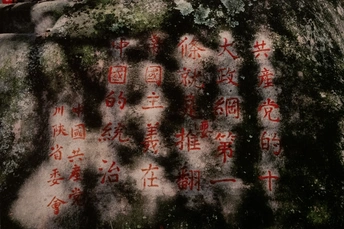 共產黨的十
大政綱第一
條就是要推翻
帝國主義在
中國的統治
中國共產黨
川陝省委會